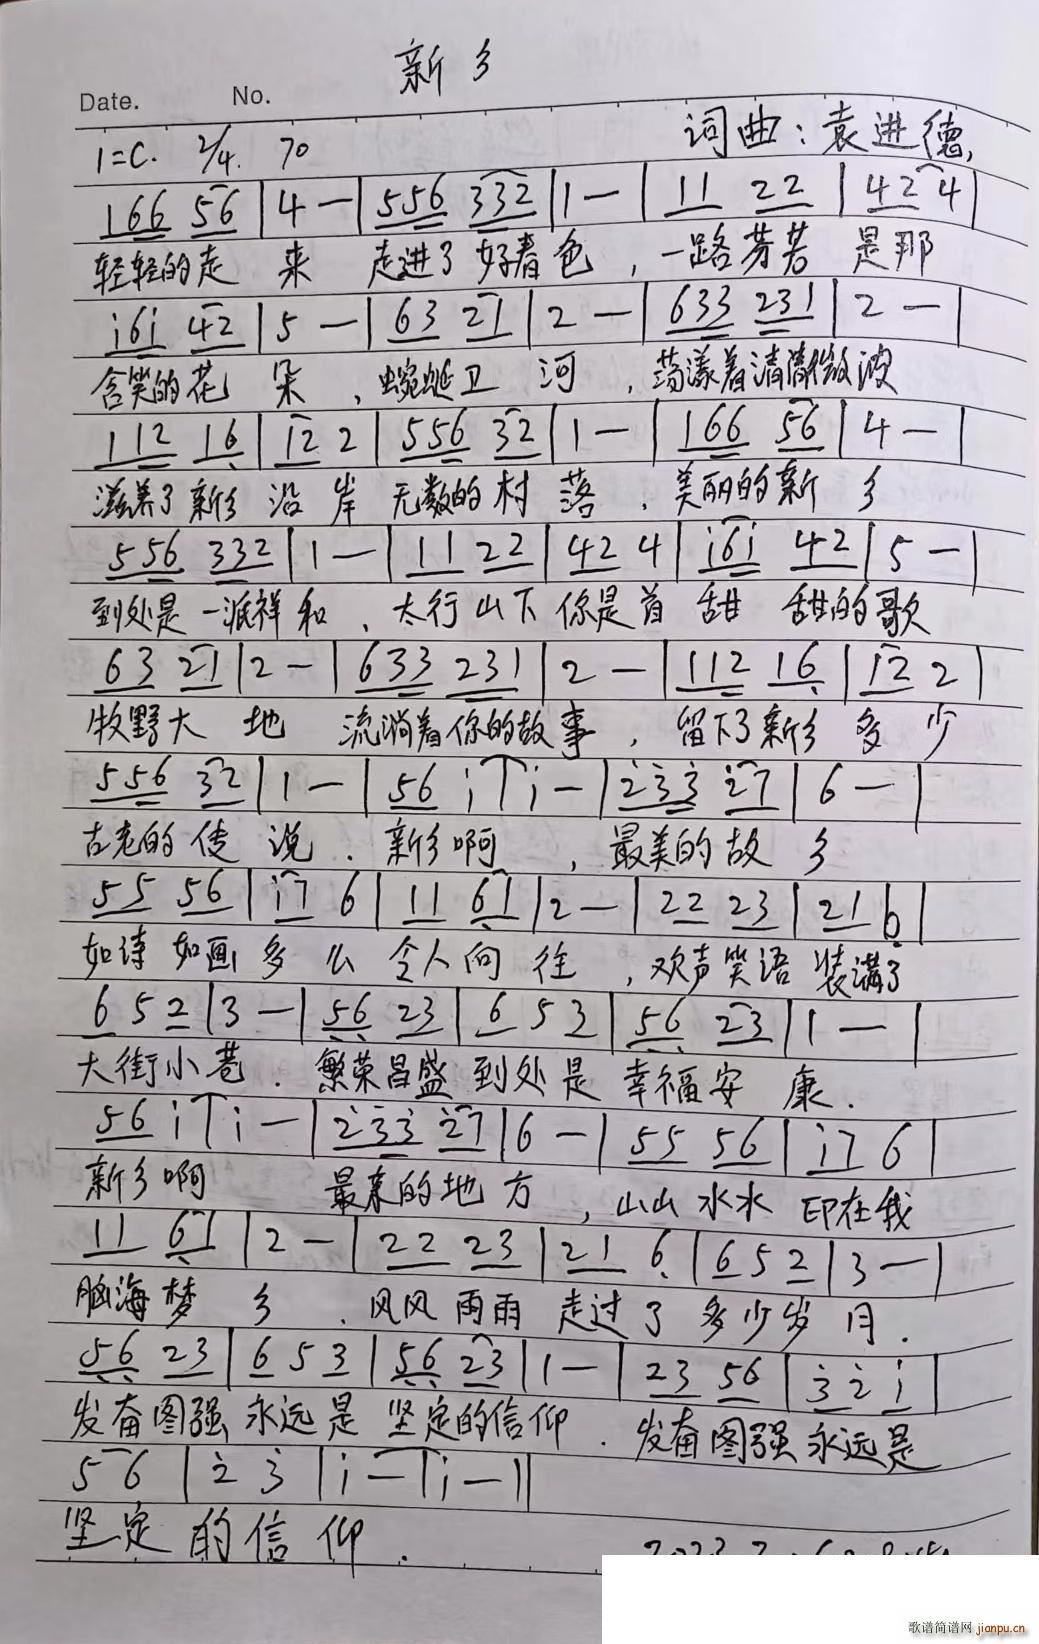 新乡
Date. No.
1=C. 2/4. 70 词曲:袁进德
166 56 | 4 — | 556 332 | 1 — | 11 22 | 42 4 |
轻轻的走 来 走进了好春色 , 一路芬芳 是那
i6i 42 | 5 — | 63 21 | 2 — | 633 231 | 2 — |
含笑的花 朵 , 蜿蜒卫 河 , 荡漾着清澈微波
112 16 | 12 2 | 556 32 | 1 — | 166 56 | 4 — |
滋养了新乡 沿 岸 无数的村 落 , 美丽的新 乡
556 332 | 1 — | 11 22 | 42 4 | i6i 42 | 5 — |
到处是一派祥和 , 太行山下你是首 甜 甜的歌
63 21 | 2 — | 633 231 | 2 — | 112 16 | 12 2 |
牧野大 地 流淌着你的故事 , 留下了新乡 多 少
556 32 | 1 — | 56 i | i — | 233 i7 | 6 — |
古老的传 说 . 新乡啊 , 最美的故 乡
55 56 | i7 6 | 11 61 | 2 — | 22 23 | 21 6 |
如诗 如画 多 么 令人向 往 , 欢声笑语 装满了
6 5 2 | 3 — | 56 23 | 6 5 3 | 56 23 | 1 — |
大街小巷 . 繁荣昌盛 到处是 幸福安 康 .
56 i | i — | 233 27 | 6 — | 55 56 | i7 6 |
新乡啊 最亲的地 方 , 山山 水水 印在我
11 61 | 2 — | 22 23 | 21 6 | 6 5 2 | 3 — |
脑海梦 乡 . 风风雨雨 走过了 多少岁 月 .
56 23 | 6 5 3 | 56 23 | 1 — | 23 56 | 3 2 i |
发奋图强 永远是 坚定的信仰 . 发奋图强永远是
5 6 | 2 3 | i — | i — ||
坚定 的信 仰 .
歌谱简谱网 jianpu.cn